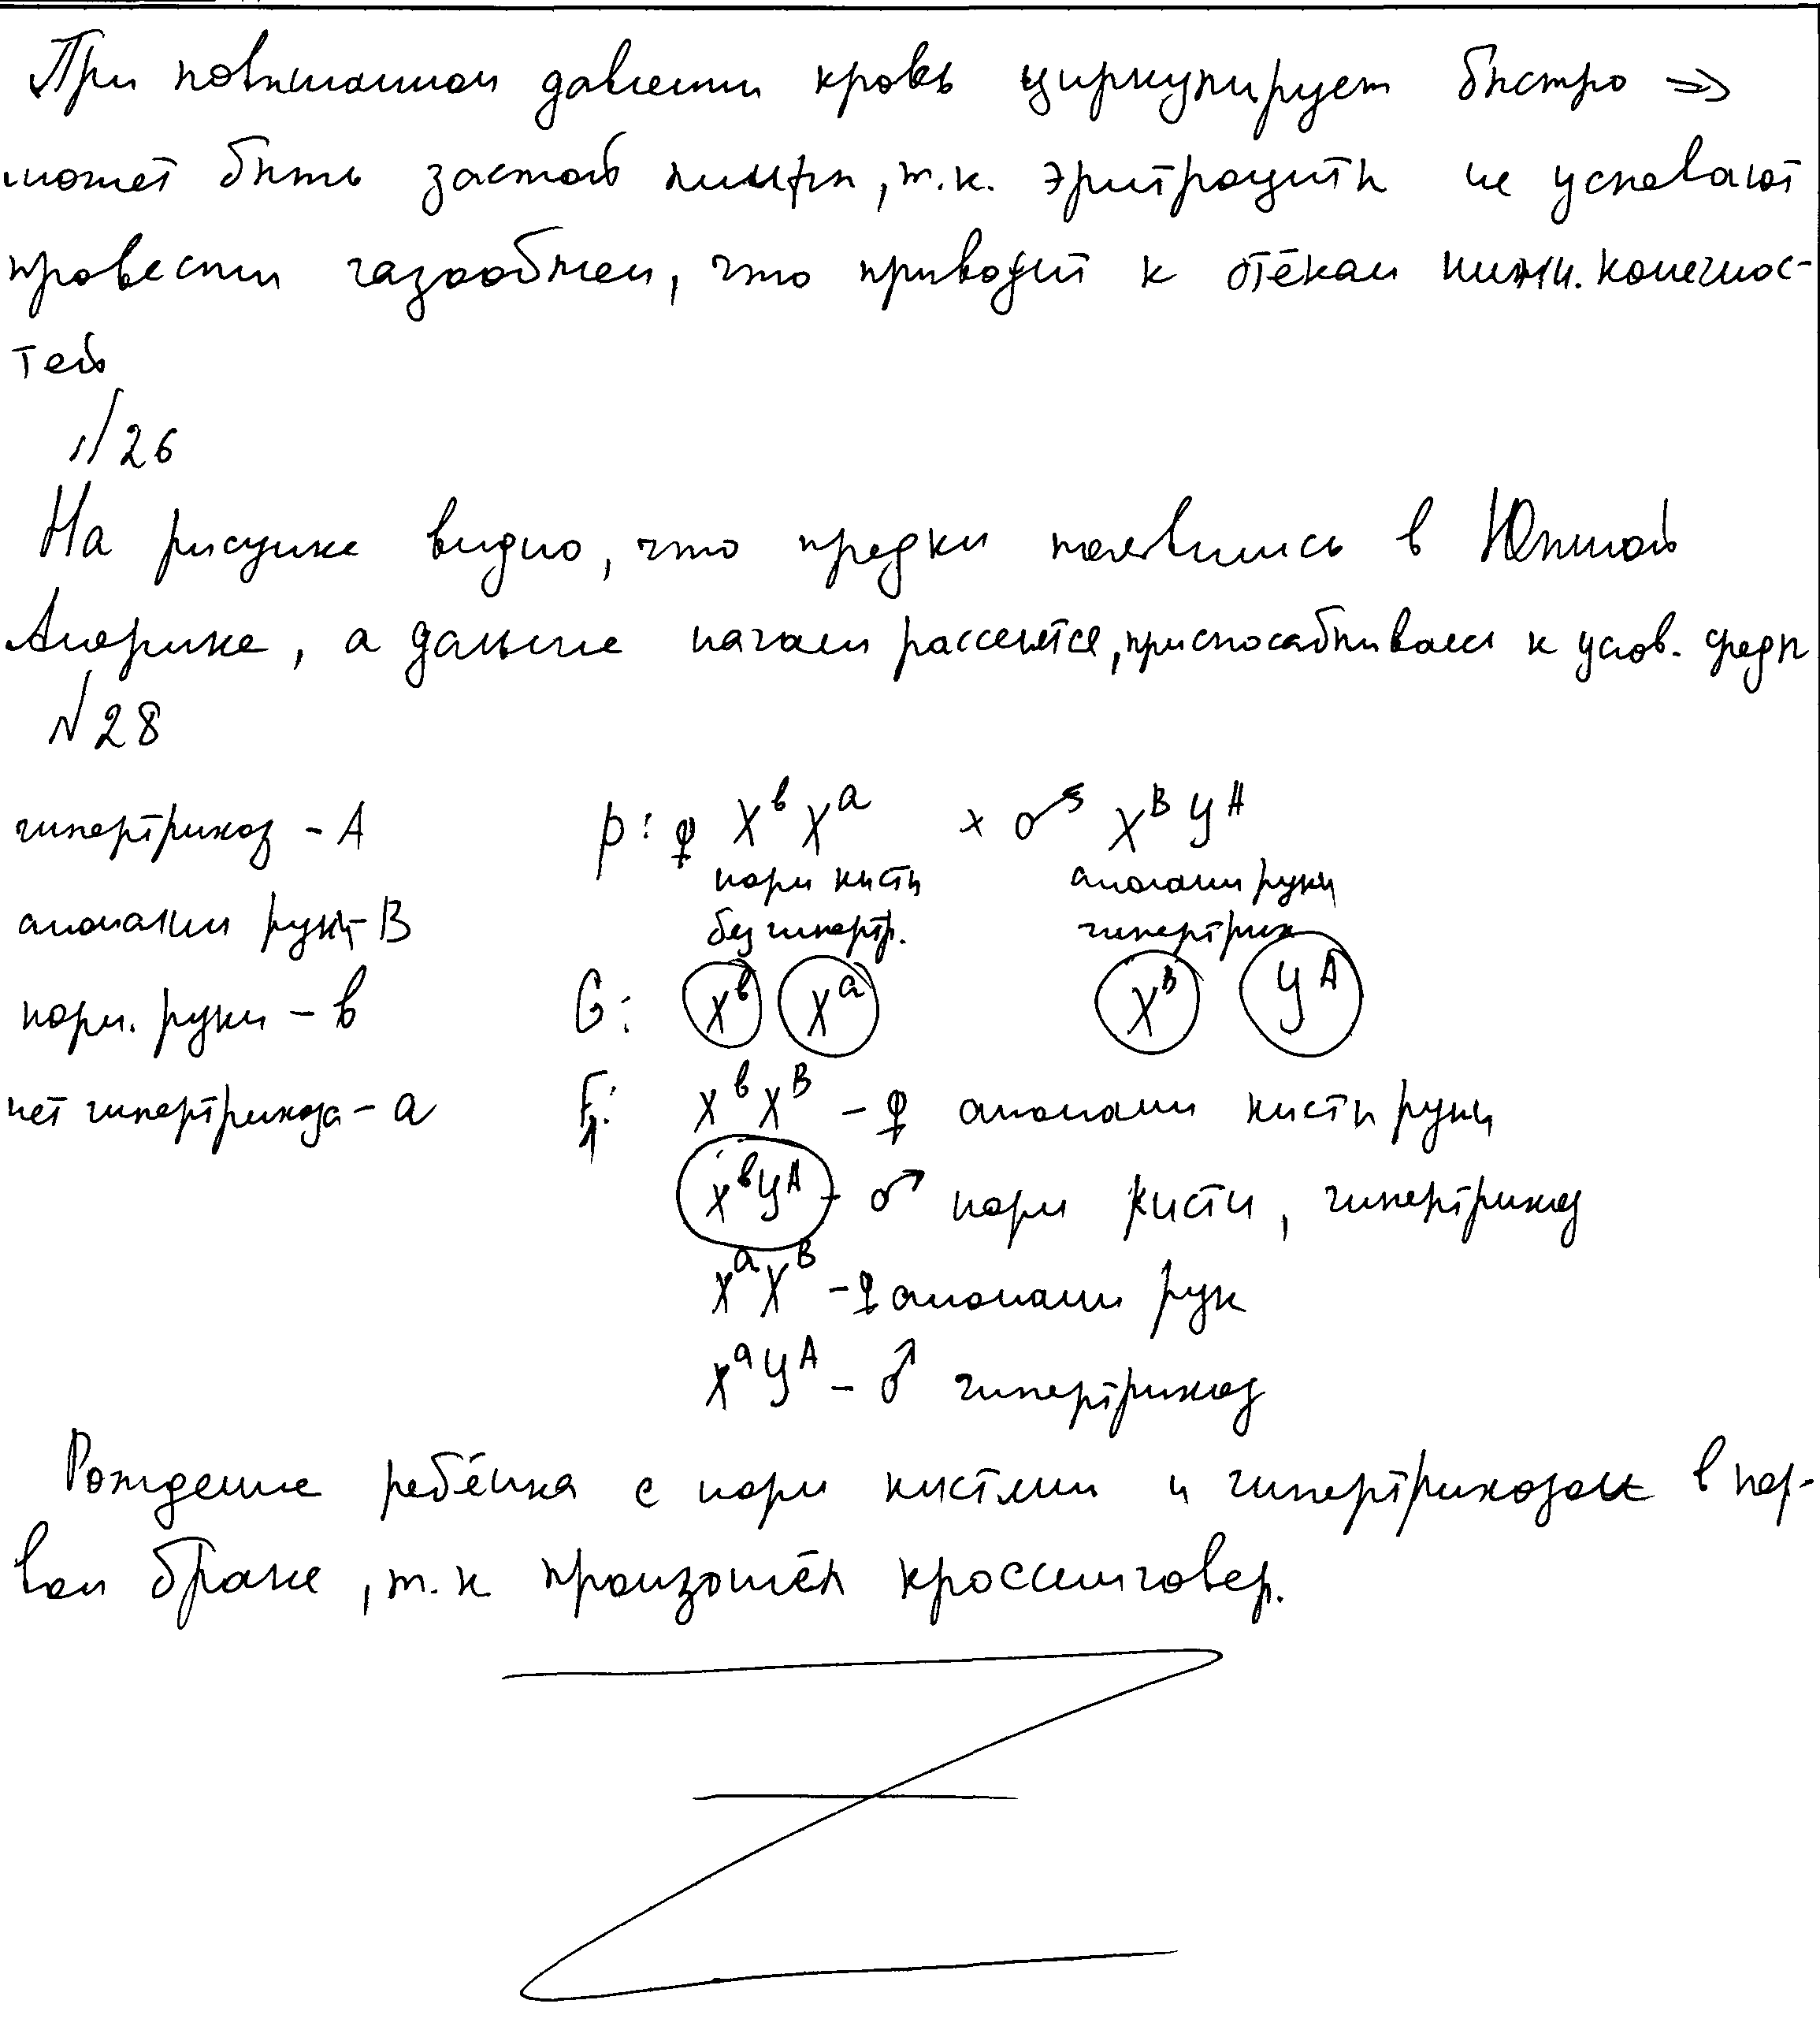 При повышенном давлении кровь циркулирует быстро =>
может быть застой лимфы, т.к. эритроциты не успевают
провести газообмен, что приводит к отёкам нижн. конечнос-
тей
№26
На рисунке видно, что предки появились в Южной
Америке, а дальше начали расселятся, приспосабливаясь к услов. среды
№28
гипертрихоз - A
аномалии руки - B
норм. руки - b
нет гипертрихоза - a
P: ♀ X^b X^a × ♂ X^B Y^A
норм кисти аномалии руки
без гипертр. гипертрих
G: X^b X^a X^B Y^A
F1: X^b X^B - ♀ аномалии кисти руки
X^b Y^A - ♂ норм кисти, гипертрихоз
X^a X^B - ♀ аномалии рук
X^a Y^A - ♂ гипертрихоз
Рождение ребёнка с норм кистями и гипертрихозом в пер-
вом браке, т.к произошёл кроссинговер.
Z